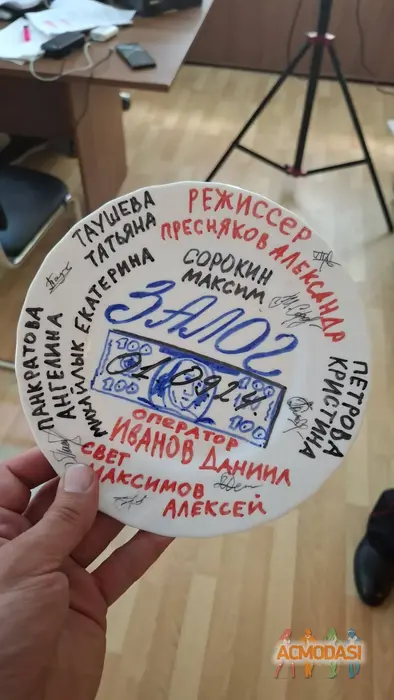 РЕЖИССЕР
ПРЕСНЯКОВ АЛЕКСАНДР
ТАУШЕВА
ТАТЬЯНА
СОРОКИН
МАКСИМ
МИХАЙЛЫК ЕКАТЕРИНА
ПАНКРАТОВА
АНГЕЛИНА
ПЕТРОВА
КРИСТИНА
ЗАЛОГ
100
100
010924
100
100
ОПЕРАТОР
ИВАНОВ ДАНИИЛ
СВЕТ
МАКСИМОВ
АЛЕКСЕЙ
ACMODASI